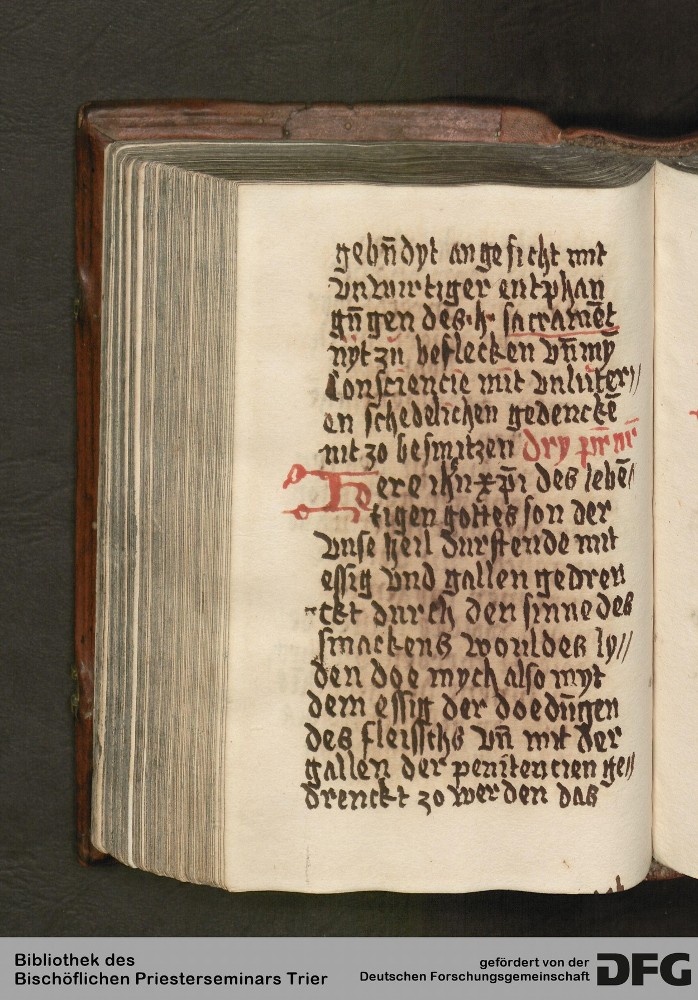 gebūdyt angesicht mit
vnwirtiger entphan
gūgen des · h · sacramēt
nyt zu beflecken vn̄ my
Consciencie mit vnluter//
en schedelichen gedenckē
nit zo besmitzen dry pr̄ nr̄
Here ihū xp̄i des lebē/
tigen gottes son der
vnse heil durstende mit
essig vnd gallen gedren
ckt durch den sinne des
smackens wouldes ly//
den doe mych also myt
dem essig der doedūgen
des fleisschs vn̄ mit der
gallen der penitencien ge//
drenckt zo werden das
Bibliothek des
Bischöflichen Priesterseminars Trier
gefördert von der
Deutschen Forschungsgemeinschaft
DFG